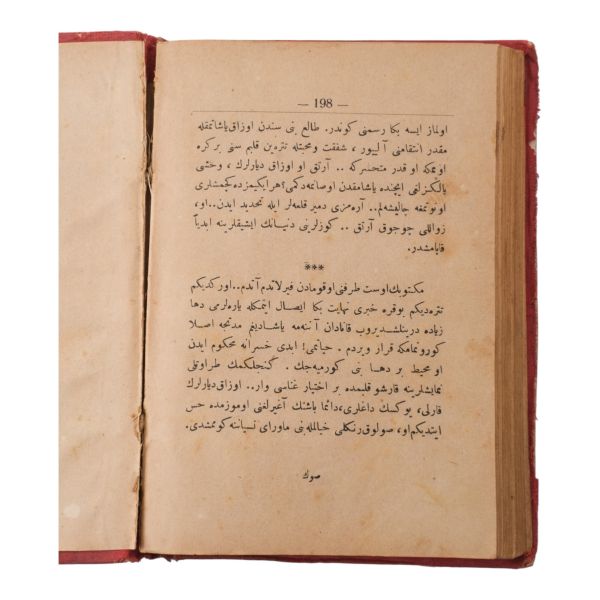 — 198 —
اولماز ایسه بكا رسمنی كوندر. طالع بنی سندن اوزاق یاشاتمقله
مقدر انتقامنی آلیور ، شفقت و محبتله تتره‌ین قلبم سنی بركره
او قدر متحسركه .. آرتق او اوزاق دیارلرك ، وحشی
یالكزلغی ایچنده یاشامقدن اوصانمه‌دكمی؟ هر ایكیمزده كچمشلری
اونوتمغه چالیشه‌لم.. آره‌مزی دمیر قلعه‌لر ایله تحدید ایدن.. او،
زواللی چوجوق آرتق .. كوزلرینی دنیانك ایشیقلرینه ابدیاً
قاپامشدر.
***
مكتوبك اوست طرفنی اوقومادن فیرلاتدم آتدم.. اوركدیكم
تتره‌دیكم بو قره خبری نهایت بكا ایصال ایتمكله یاره‌لرمی دها
زیاده درینلشدیروب قانادان آننه‌مه یاشادیغم مدتجه اصلا
كورونمامكه قرار ویردم . حیاتمی! ابدی خسرانه محكوم ایدن
او محیط بر دها بنی كورمیه‌جك . كنجلكمك طراوتلی
نمایشلرینه قارشو قلبمده بر اختیار غناسی وار.. اوزاق دیارلرك
قارلی، یوكسك داغلری، دائما باشنك آغیرلغنی اوموزمده حس
ایتدیكم او، صولوق رنكلی خیالله بنی ماورای نسیاننه كوممشدی.
صوك